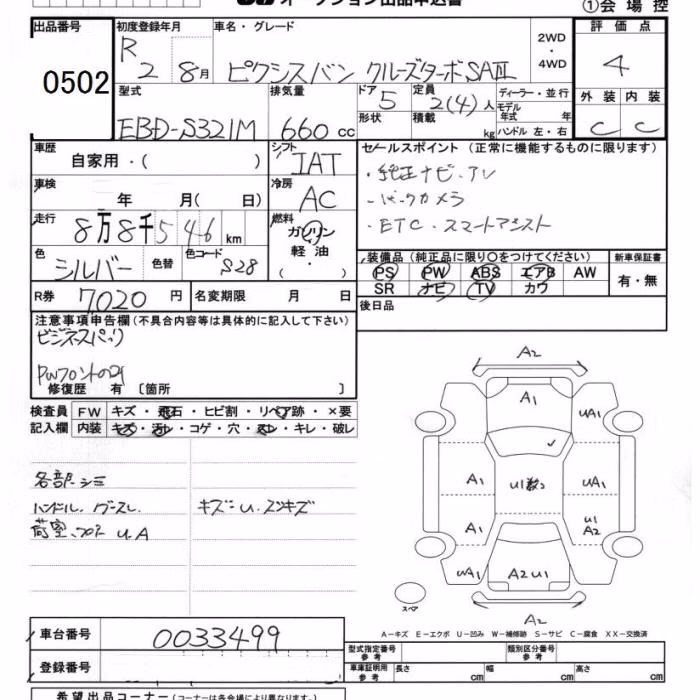 オークション出品申込書
①会場控
出品番号 初度登録年月 車名・グレード 評価点
0502 R 2 8月 ピクシスバン クルーズターボSAⅢ 2WD・4WD 4
型式 排気量 ドア 定員 ディーラー・並行 外装 内装
EBD-S321M 660cc 5 2(4)人 モデル年式 年 C C
形状 積載 kg ハンドル 左・右
車歴 自家用・( ) シフト IAT
セールスポイント(正常に機能するものに限ります)
・純正ナビ・TV
・バックカメラ
・ETC・スマートアシスト
車検 年 月( 日) 冷房 AC
走行 8万8千546km 燃料 ガソリン・軽油・( )
色 シルバー 色替 色コード S28
装備品(純正品に限り○をつけてください) 新車保証書
PS PW ABS エアB AW 有・無
SR ナビ TV カワ
R券 7020円 名変期限 月 日
後日品
注意事項申告欄(不具合内容等は具体的に記入して下さい)
ビジネスパック
PWフロントのみ
修復歴 有 〔箇所 〕
検査員 FW キズ・飛石・ヒビ割・リペア跡・×要
記入欄 内装 キズ・汚レ・コゲ・穴・スレ・キレ・破レ
各部シミ
ハンドル、
キズ=U、スリキズ
荷室、フロア U.A
A2
A1
UA1
U1数コ
A1
UA1
A1
U1
A2
UA1
A2U1
スペア
A2
A-キズ E-エクボ U-凹み W-補修跡 S-サビ C-腐食 XX-交換済
車台番号 0033499
登録番号
型式指定番号 参考 類別区分番号 参考
車庫証明用 参考 長さ cm 幅 cm 高さ cm
希望出品コーナー(コーナーは各会場により異なります)